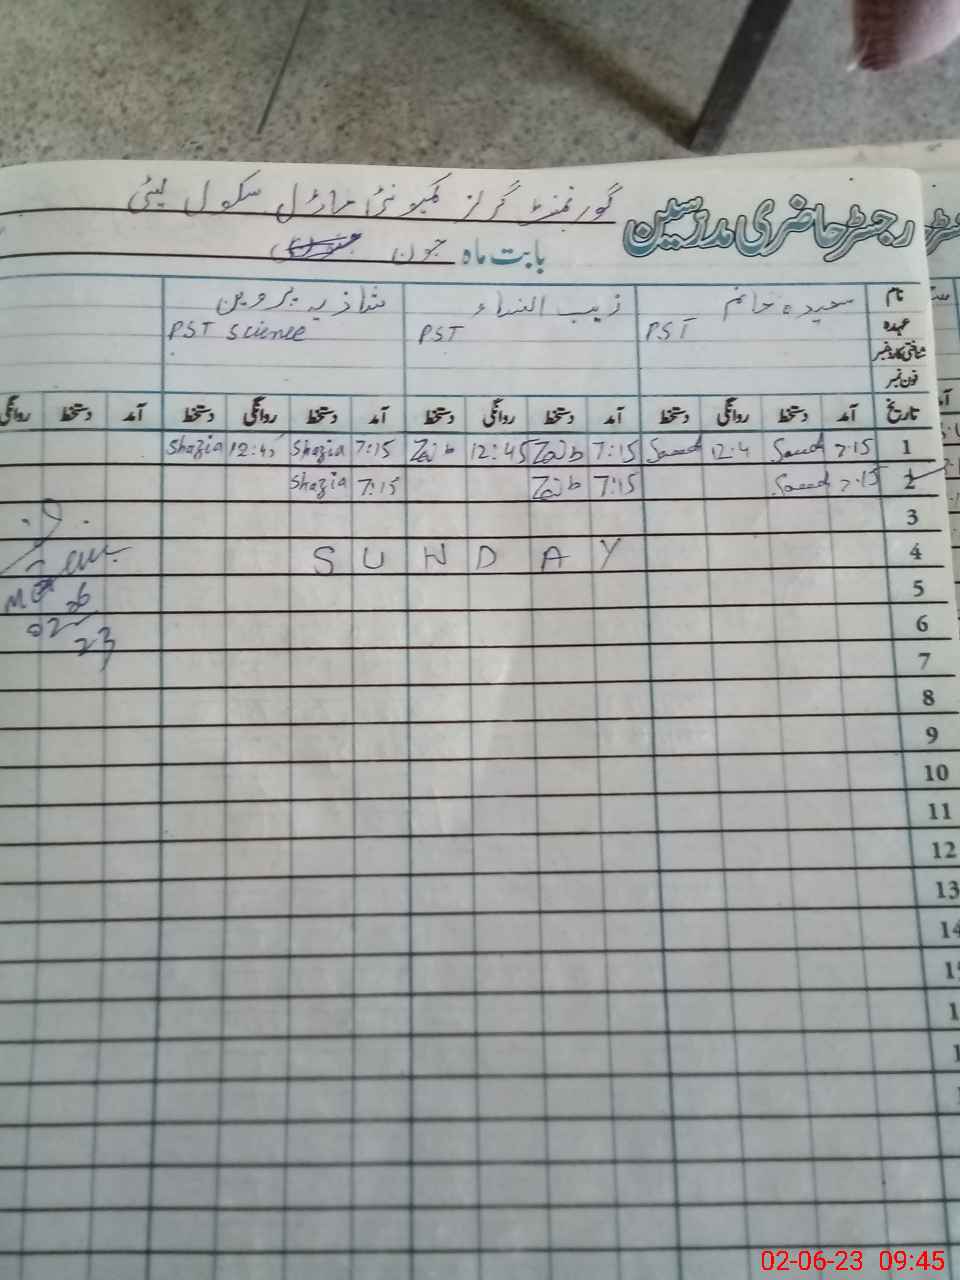 رجسٹر حاضری مدرسین گورنمنٹ گرلز کمیونٹی ماڈل سکول لیٹی
بابت ماہ جون
نام سعیدہ خانم زیب النساء شازیہ پروین
عہدہ PST PST PST Science
شناختی کارڈ نمبر
فون نمبر
تاریخ آمد دستخط روانگی دستخط آمد دستخط روانگی دستخط آمد دستخط روانگی دستخط آمد دستخط روانگی
1 7:15 Saeed 12:4 Saeed 7:15 Zaib 12:45 Zaib 7:15 Shazia 12:45 Shazia
2 7:15 Saeed 7:15 Zaib 7:15 Shazia
3
4 SUNDAY
5
6
7
8
9
10
11
12
13
14
02-06-23 09:45